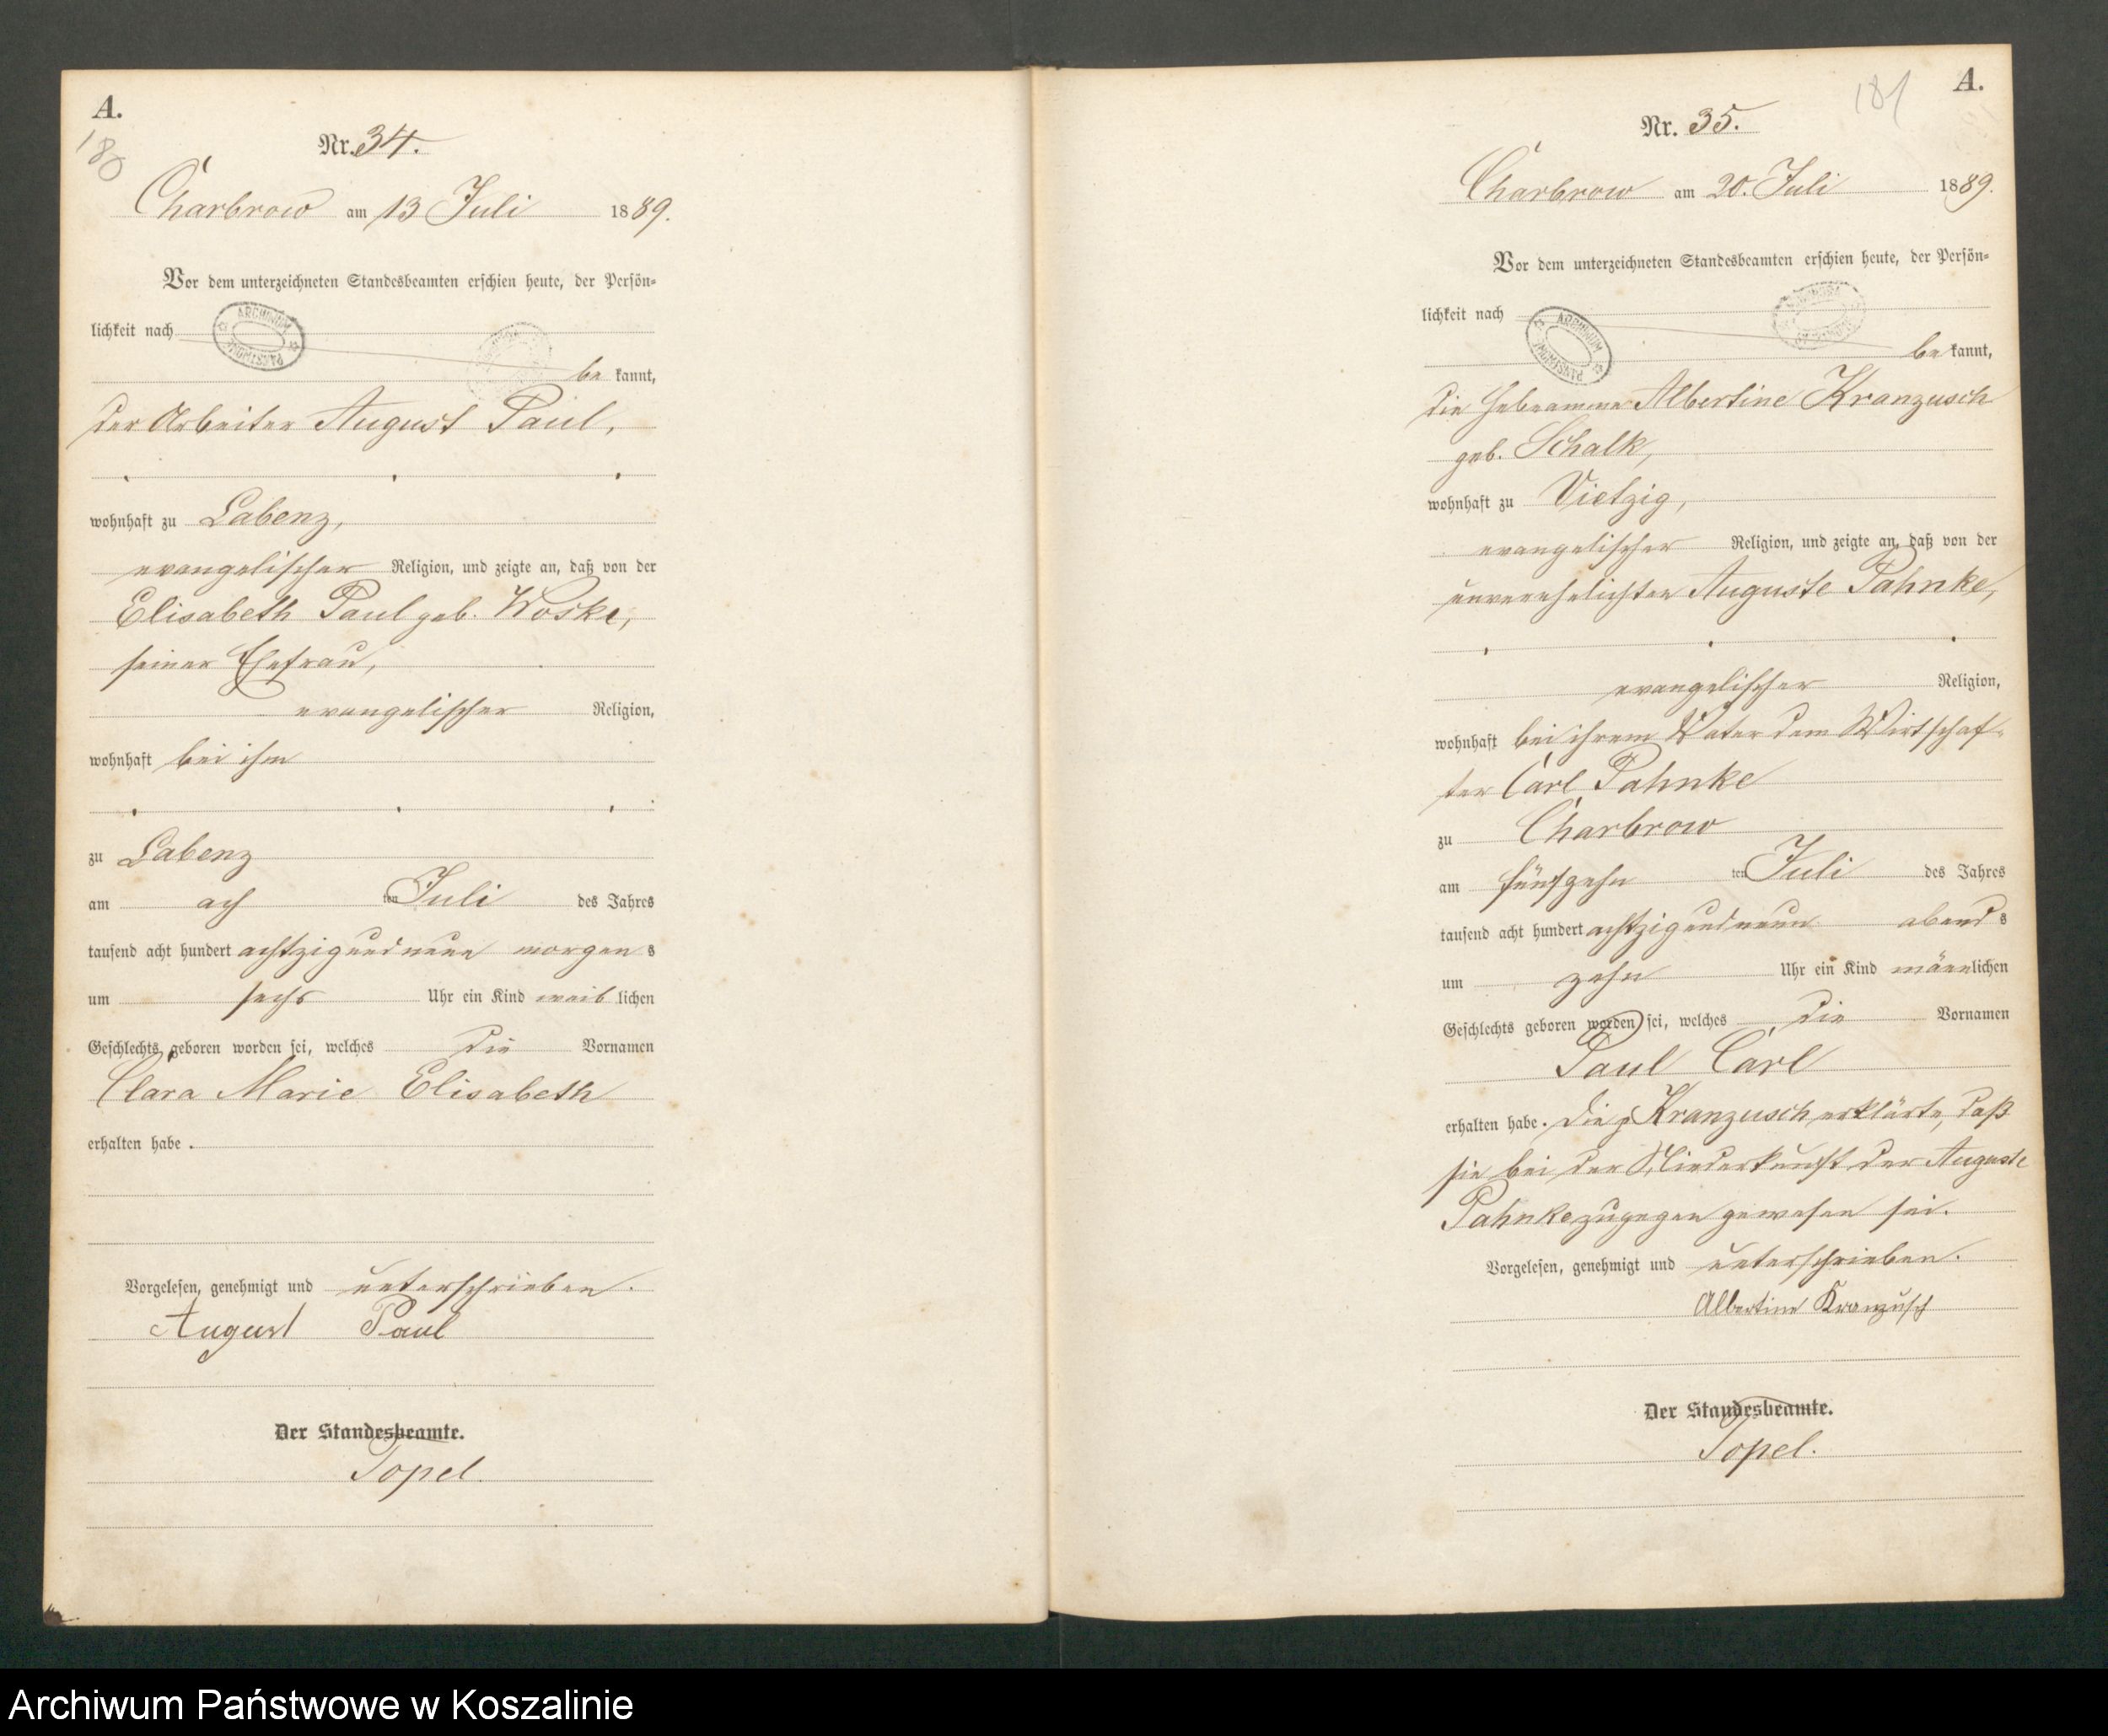 A.
180
Nr. 34.
Charbrow am 13 Juli 1889.
Vor dem unterzeichneten Standesbeamten erschien heute, der Persön-
lichkeit nach
ARCHIWUM PAŃSTWOWE
be kannt,
der Arbeiter August Paul,
wohnhaft zu Labenz,
evangelischer Religion, und zeigte an, daß von der
Elisabeth Paul geb. Woske,
seiner Ehefrau,
evangelischer Religion,
wohnhaft bei ihm
zu Labenz
am ach ten Juli des Jahres
tausend acht hundert achtzig und neun morgen s
um sechs Uhr ein Kind weib lichen
Geschlechts geboren worden sei, welches die Vornamen
Clara Marie Elisabeth
erhalten habe.
Vorgelesen, genehmigt und unterschrieben.
August Paul
Der Standesbeamte.
Topel.
A.
181
Nr. 35.
Charbrow am 20. Juli 1889.
Vor dem unterzeichneten Standesbeamten erschien heute, der Persön-
lichkeit nach
ARCHIWUM PAŃSTWOWE
be kannt,
die Hebeamme Albertine Kranzusch
geb. Schalk,
wohnhaft zu Vietzig,
evangelischer Religion, und zeigte an, daß von der
unverehelichten Auguste Pahnke,
evangelischer Religion,
wohnhaft bei ihrem Vater dem Wirtschaf-
ter Carl Pahnke
zu Charbrow
am fünfzehn ten Juli des Jahres
tausend acht hundert achtzig und neun abend s
um zehn Uhr ein Kind männlichen
Geschlechts geboren worden sei, welches die Vornamen
Paul Carl
erhalten habe. Die p Kranzusch erklärte, daß
sie bei der Niederkunft der Auguste
Pahnke zugegen gewesen sei.
Vorgelesen, genehmigt und unterschrieben.
Albertine Kranzusch
Der Standesbeamte.
Topel.
Archiwum Państwowe w Koszalinie